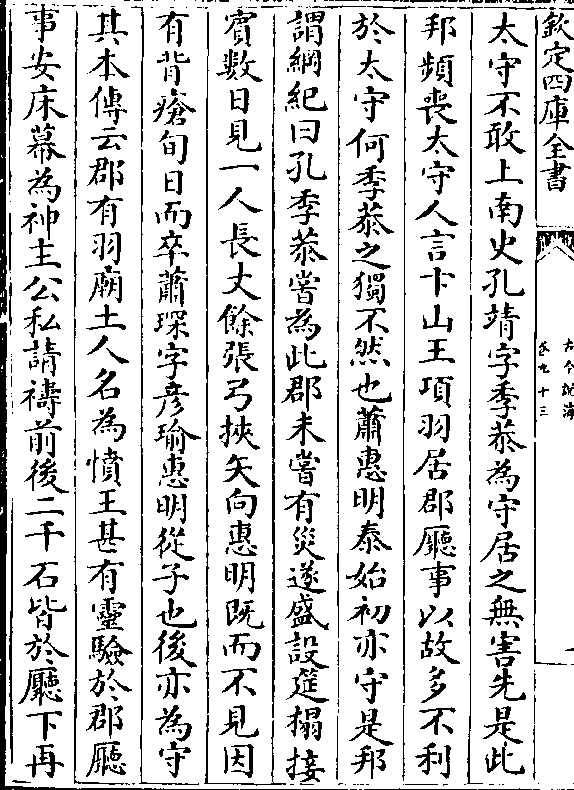 欽定四庫全書
古今說海
卷九十三
太守不敢上南史孔靖字季恭為守居之無害先是此
邦頻喪太守人言卞山王項羽居郡廳事以故多不利
於太守何季恭之獨不然也蕭惠明泰始初亦守是邦
謂綱紀曰孔季恭嘗為此郡未嘗有災遂盛設筵榻接
賓數日見一人長丈餘張弓挾矢向惠明既而不見因
有背瘡旬日而卒蕭琛字彥瑜惠明從子也後亦為守
其本傳云郡有羽廟土人名為憤王甚有靈驗於郡廳
事安床幕為神主公私請禱前後二千石皆於廳下再